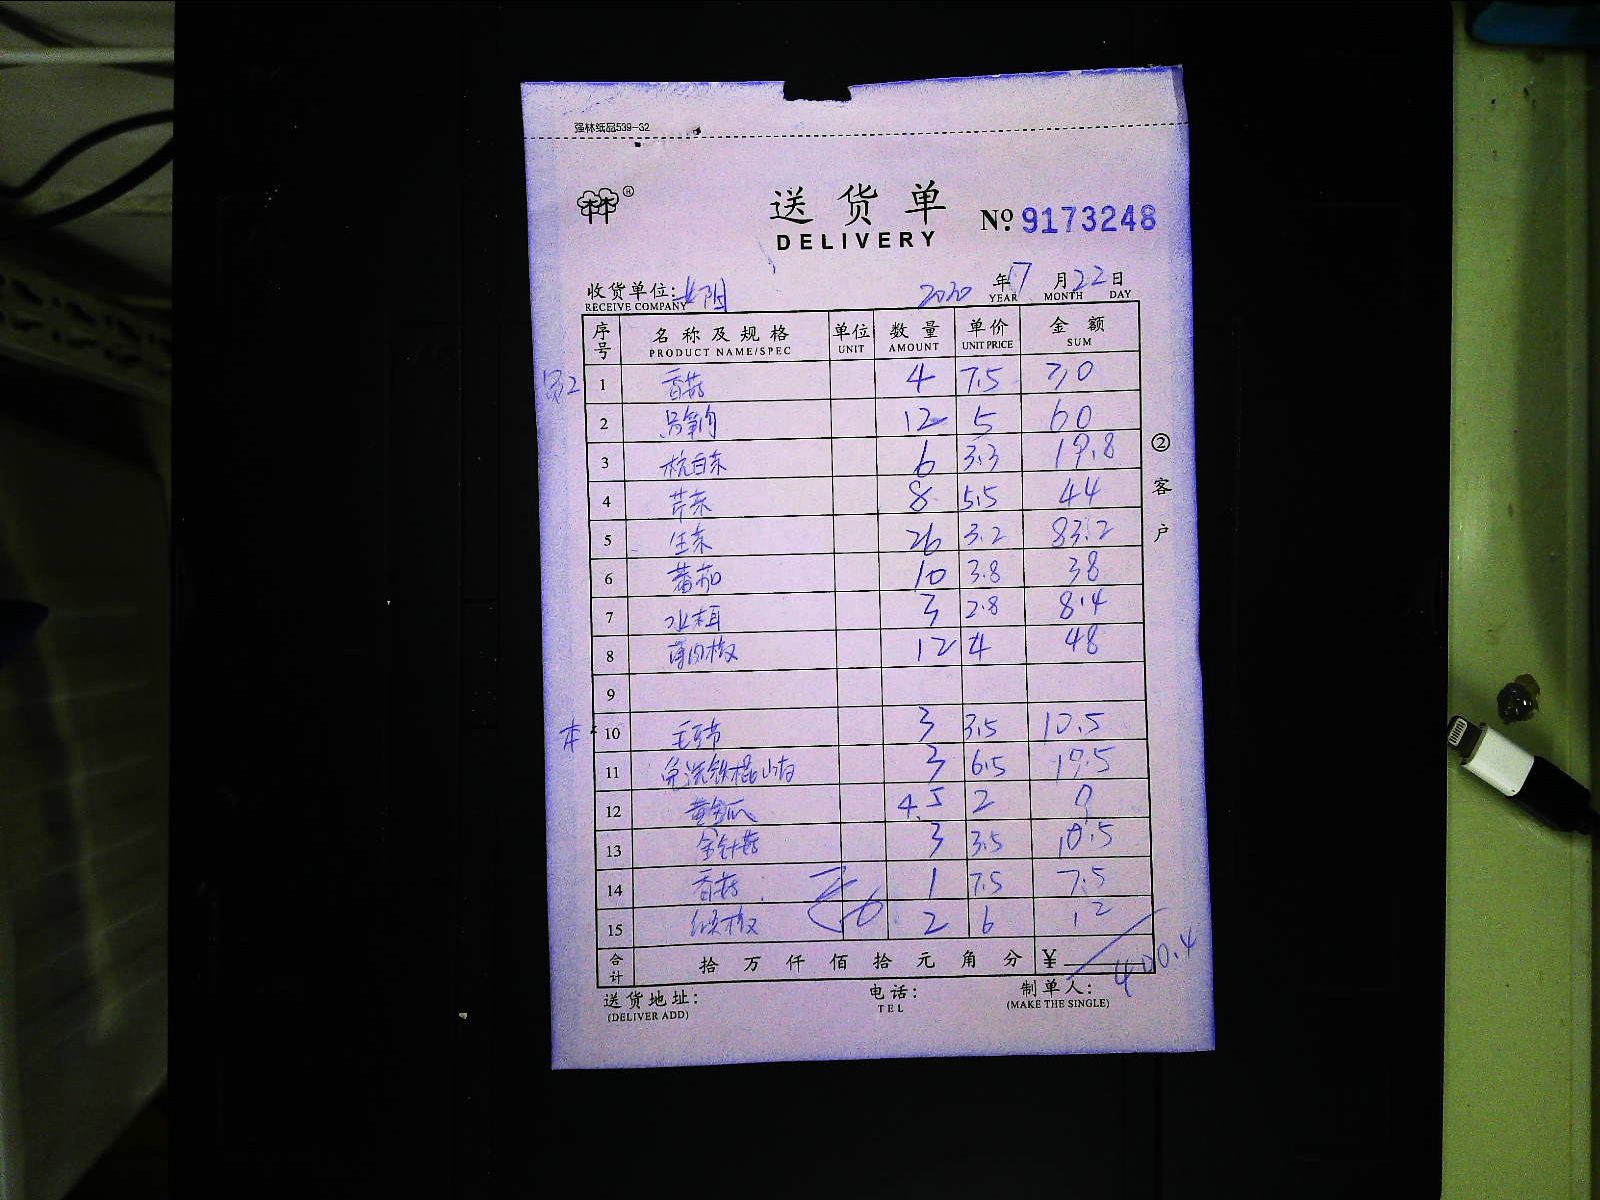 强林纸品539-32
林 ®
送货单
DELIVERY
№ 9173248
收货单位:
RECEIVE COMPANY
2020 年 7 月 22 日
YEAR MONTH DAY
序号 名称及规格 单位 数量 单价 金额
PRODUCT NAME/SPEC UNIT AMOUNT UNIT PRICE SUM
1 香菇 4 7.5 30
2 12 5 60
3 杭白菜 6 3.3 19.8
4 芹菜 8 5.5 44
5 生菜 26 3.2 83.2
6 蕃茄 10 3.8 38
7 水木耳 3 2.8 8.4
8 薄皮椒 12 4 48
9
本 10 毛豆节 3 3.5 10.5
11 免洗铁棍山药 3 6.5 19.5
12 黄金瓜 4.5 2 9
13 金针菇 3 3.5 10.5
14 香菇 1 7.5 7.5
15 2 6 12
合计 拾 万 仟 佰 拾 元 角 分 ¥ 400.4
②客户
送货地址: 电话: 制单人:
(DELIVER ADD) TEL (MAKE THE SINGLE)